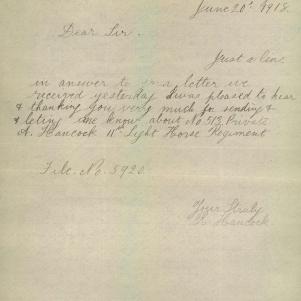 June 20th 1918.
Dear Sir.
Just a line
in answer to your letter we
received yesterday I was pleased to hear
& thanking you very much for sending &
& leting me know about No 513 Private
A. Hancock 11th Light Horse Regiment
File. No. 8920.
Yours Truly
Hancock.